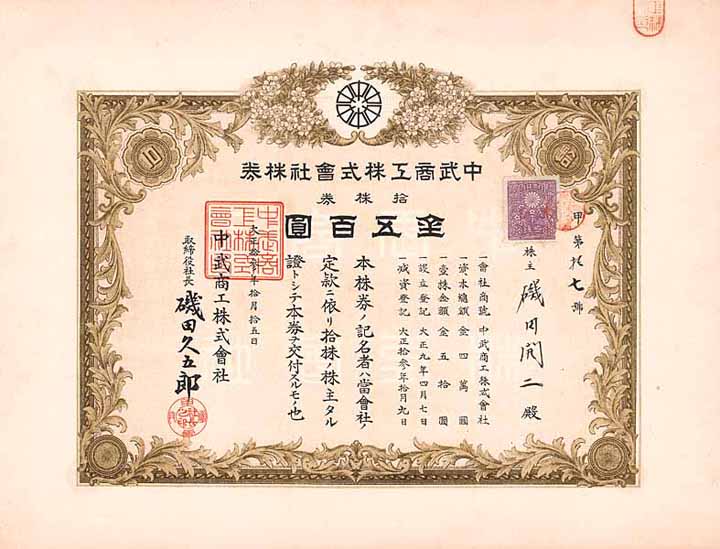 中武商工株式會社株券
拾株券
金五百圓
甲第拾七號
株主 磯田 二殿
一會社商號 中武商工株式會社
一資本總額 金四萬圓
一壹株金額 金五拾圓
一設立登記 大正九年四月七日
一減資登記 大正拾參年拾月九日
本株券ノ記名者ハ當會社
定款ニ依リ拾株ノ株主タル
證トシテ本券ヲ交付スルモノ也
大正拾參年拾月拾五日
中武商工株式會社
取締役社長 磯田久五郎
拾